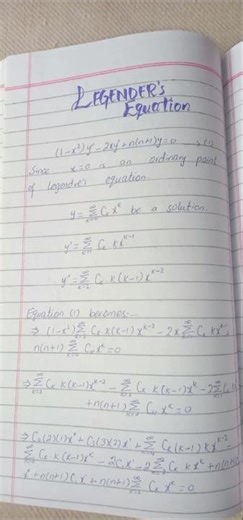 LEGENDER'S
Equation
(1-x²)y″-2xy′+n(n+1)y=0 →(1)
Since x=0 is an ordinary point
of Legender's equation
y = ∑ Cₖ xᵏ be a solution.
y′ = ∑ Cₖ k xᵏ⁻¹
y″ = ∑ Cₖ k(k-1)xᵏ⁻²
Equation (1) becomes...
⇒ (1-x²)∑ Cₖ k(k-1)xᵏ⁻² - 2x ∑ Cₖ k xᵏ⁻¹
n(n+1)∑ Cₖ xᵏ = 0
⇒ ∑ Cₖ k(k-1)xᵏ⁻² - ∑ Cₖ k(k-1)xᵏ - 2∑
+ n(n+1)∑ Cₖ xᵏ = 0
⇒ C₂(2)(1)x⁰ + C₃(3)(2)x¹ + ∑ Cₖ (k-1)k xᵏ⁻²
∑ Cₖ k(k-1)xᵏ - 2C₁x - 2∑ Cₖ k xᵏ + n(n+1)
x⁰ + n(n+1)C₁x + n(n+1)∑ Cₖ xᵏ = 0